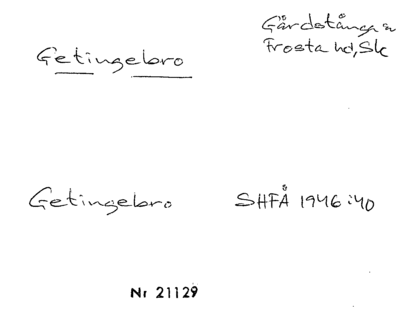 Getingebro
Gårdstånga sn
Frosta hd, Sk
Getingebro
SHFÅ 1946:40
Nr 21129